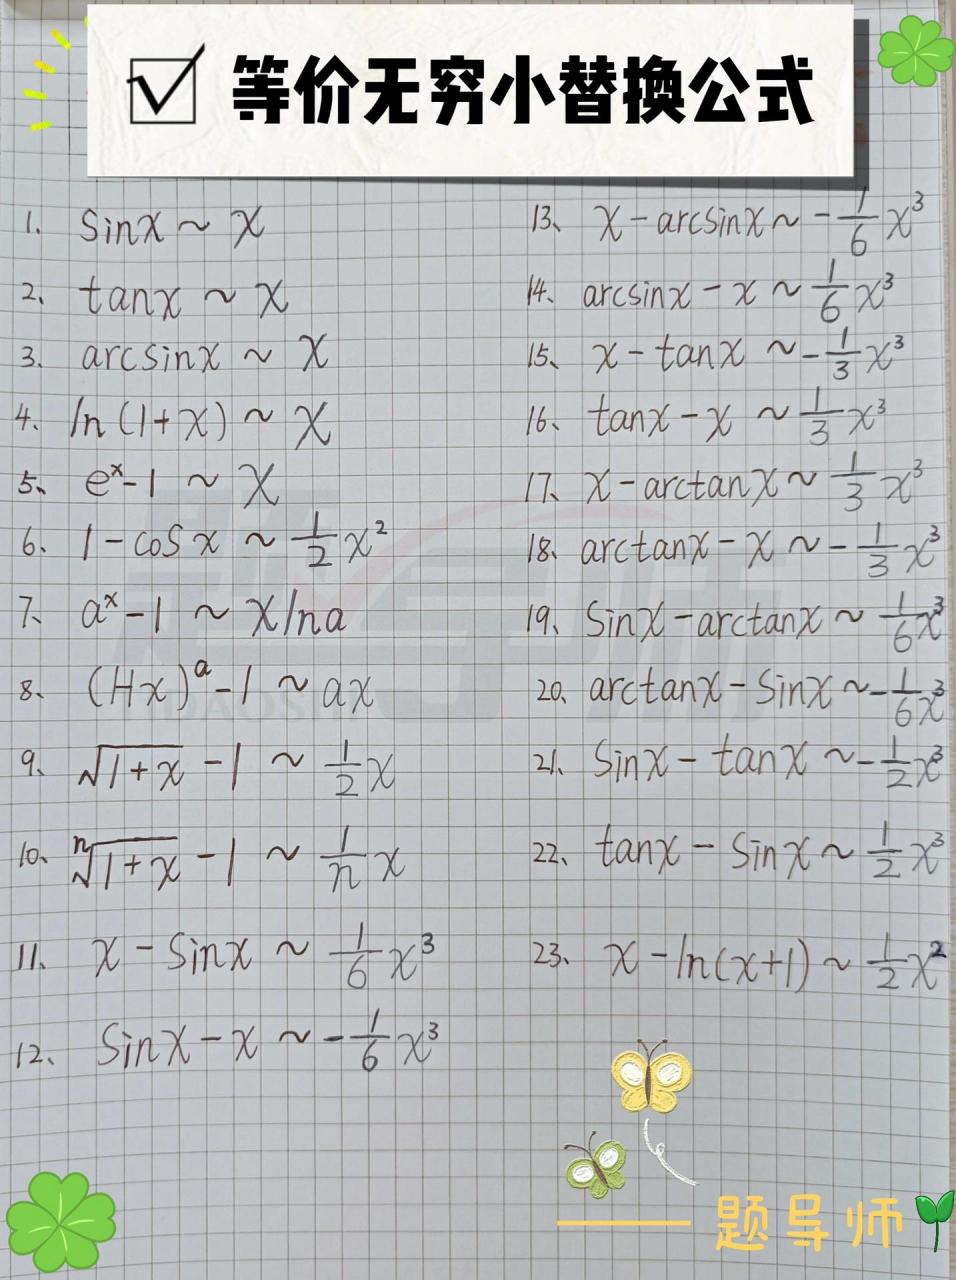 等价无穷小替换公式
1. sinx ~ x
2、tanx ~ x
3、arcsinx ~ x
4、ln(1+x) ~ x
5、eˣ-1 ~ x
6、1-cosx ~ 1/2 x²
7、aˣ-1 ~ xlna
8、(1+x)ᵃ-1 ~ ax
9、√(1+x) -1 ~ 1/2 x
10、ⁿ√(1+x) -1 ~ 1/n x
11、x - sinx ~ 1/6 x³
12、sinx - x ~ -1/6 x³
13、x - arcsinx ~ -1/6 x³
14、arcsinx - x ~ 1/6 x³
15、x - tanx ~ -1/3 x³
16、tanx - x ~ 1/3 x³
17、x - arctanx ~ 1/3 x³
18、arctanx - x ~ -1/3 x³
19、sinx - arctanx ~ 1/6 x³
20、arctanx - sinx ~ -1/6 x³
21、sinx - tanx ~ -1/2 x³
22、tanx - sinx ~ 1/2 x³
23、x - ln(x+1) ~ 1/2 x²
题导师